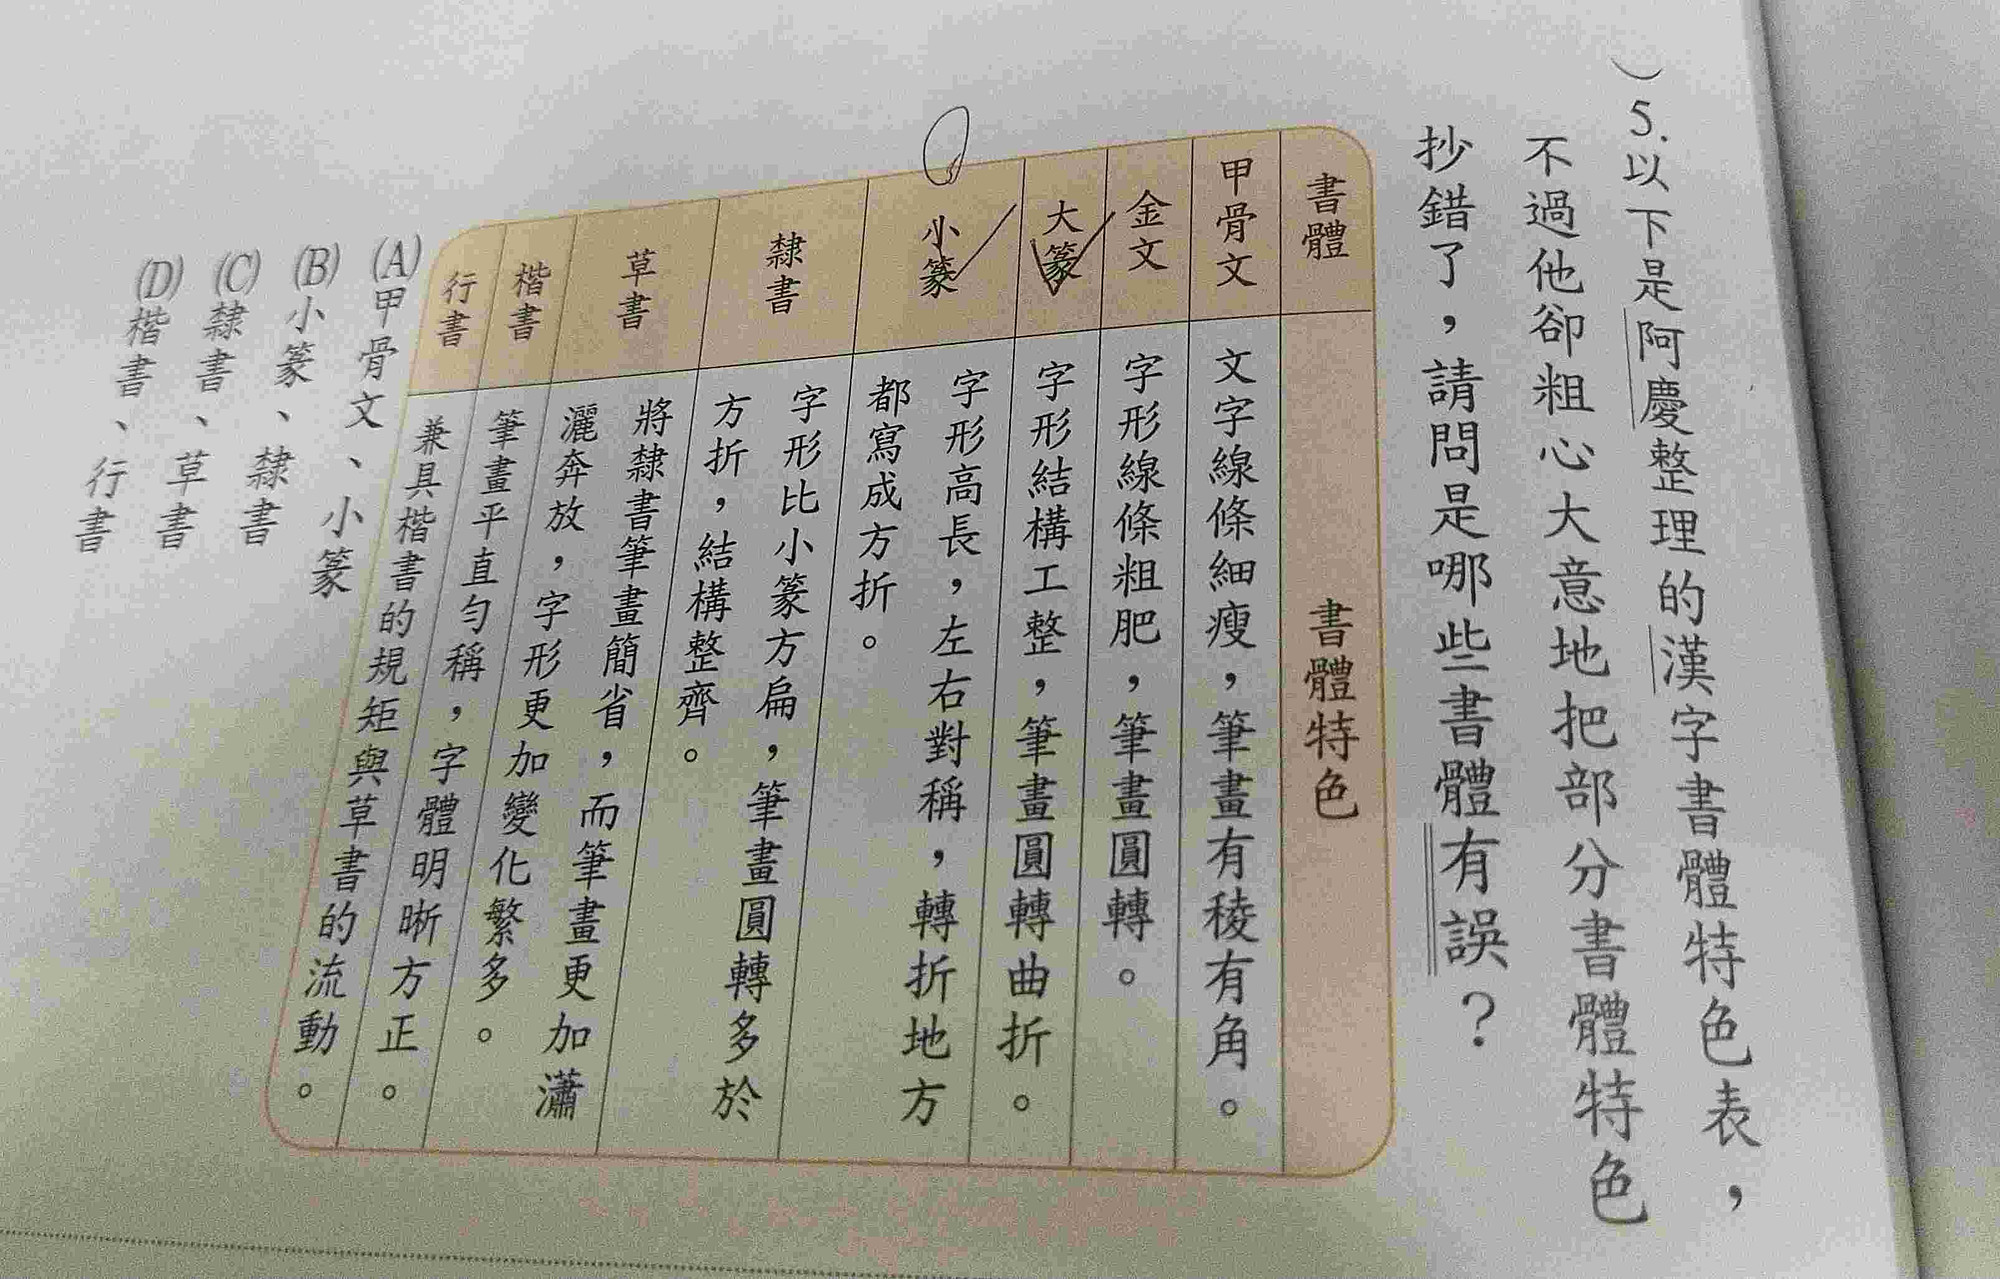 )5.以下是阿慶整理的漢字書體特色表，
不過他卻粗心大意地把部分書體特色
抄錯了，請問是哪些書體有誤？
書體
書體特色
甲骨文
文字線條細瘦，筆畫有稜有角。
金文
字形線條粗肥，筆畫圓轉。
大篆
字形結構工整，筆畫圓轉曲折。
小篆
字形高長，左右對稱，轉折地方
都寫成方折。
隸書
字形比小篆方扁，筆畫圓轉多於
方折，結構整齊。
草書
將隸書筆畫簡省，而筆畫更加瀟
灑奔放，字形更加變化繁多。
楷書
筆畫平直勻稱，字體明晰方正。
行書
兼具楷書的規矩與草書的流動。
(A)甲骨文、小篆
(B)小篆、隸書
(C)隸書、草書
(D)楷書、行書